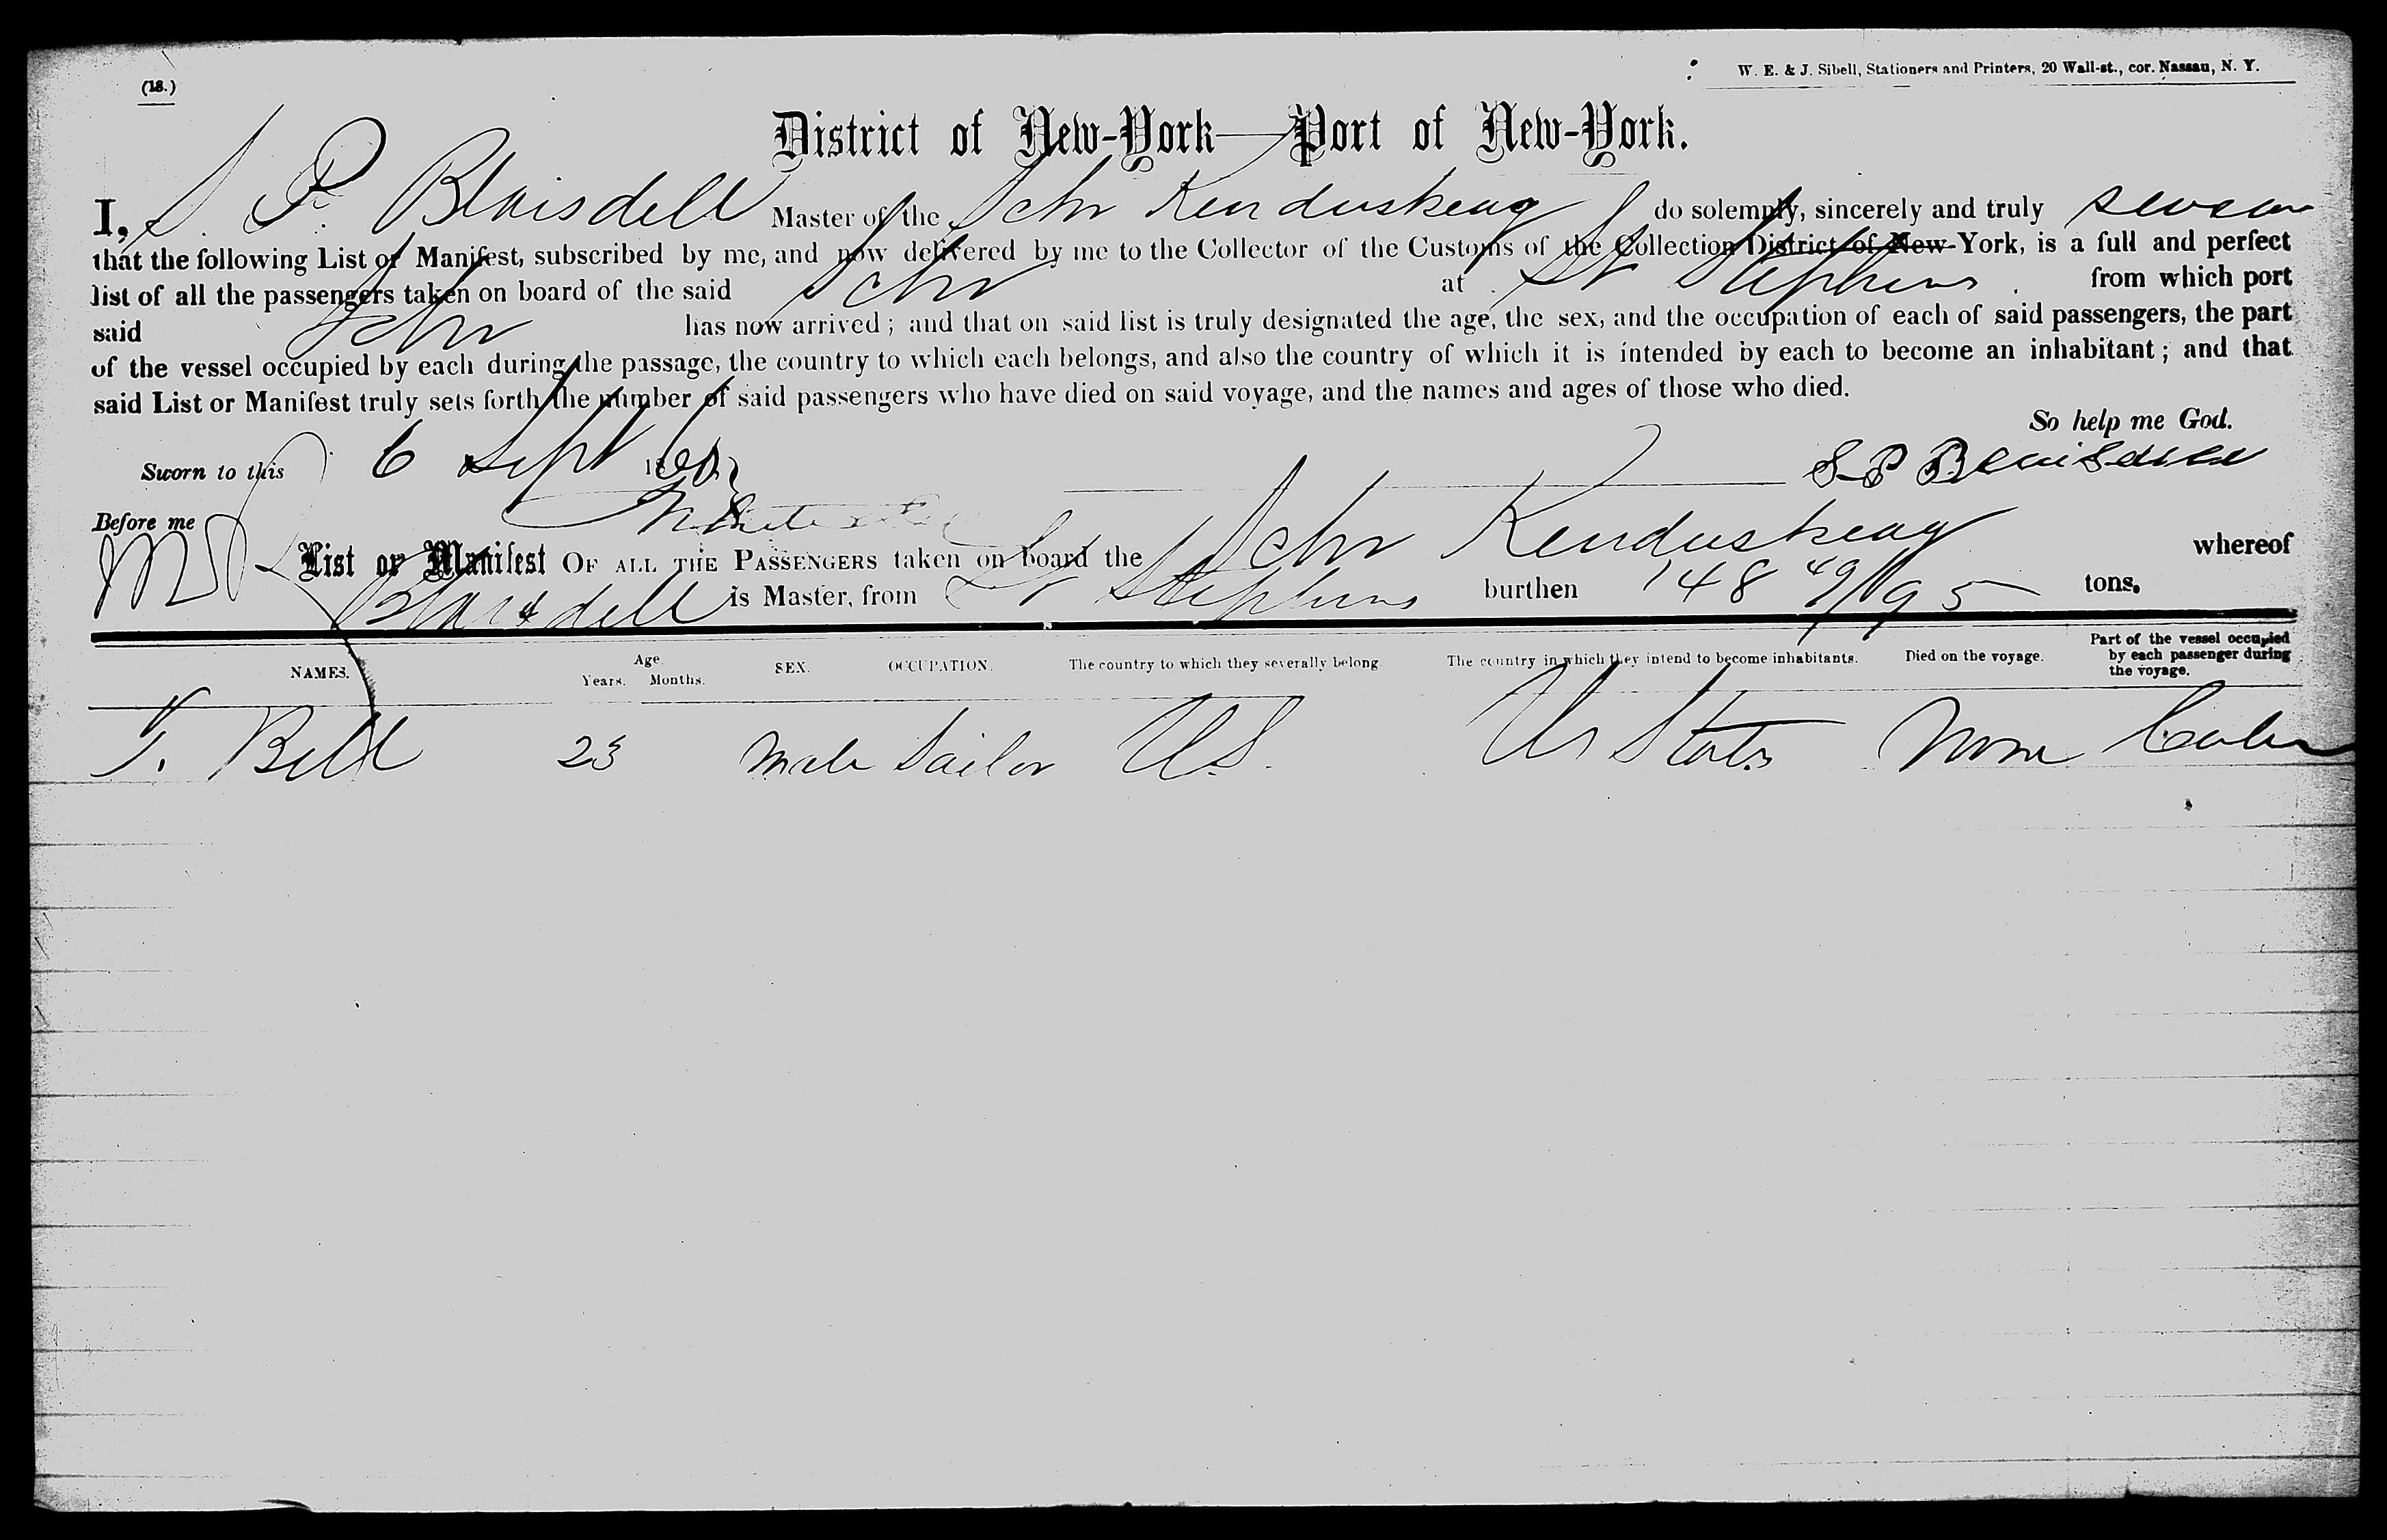 (18.)
W. E. & J. Sibell, Stationers and Printers, 20 Wall-st., cor. Nassau, N. Y.
District of New-York—Port of New-York.
I, S. P. Blaisdell Master of the Schr Kenduskeag do solemnly, sincerely and truly swear
that the following List or Manifest, subscribed by me, and now delivered by me to the Collector of the Customs of the Collection District of New-York, is a full and perfect
list of all the passengers taken on board of the said Schr at St Stephens from which port
said Schr has now arrived; and that on said list is truly designated the age, the sex, and the occupation of each of said passengers, the part
of the vessel occupied by each during the passage, the country to which each belongs, and also the country of which it is intended by each to become an inhabitant; and that
said List or Manifest truly sets forth the number of said passengers who have died on said voyage, and the names and ages of those who died.
So help me God.
Sworn to this 6 Sept 1860 S P Blaisdell
Before me
List or Manifest OF ALL THE PASSENGERS taken on board the Schr Kenduskeag whereof
Blaisdell is Master, from St Stephens burthen 148 49/95 tons.
NAMES. Age. Years. Months. SEX. OCCUPATION. The country to which they severally belong. The country in which they intend to become inhabitants. Died on the voyage. Part of the vessel occupied by each passenger during the voyage.
T. Bell 23 Male Sailor U.S. Un States None Cabin